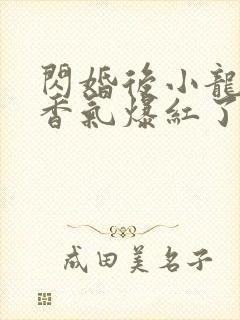 閃婚後小龍
香氣爆紅了
成田美名子